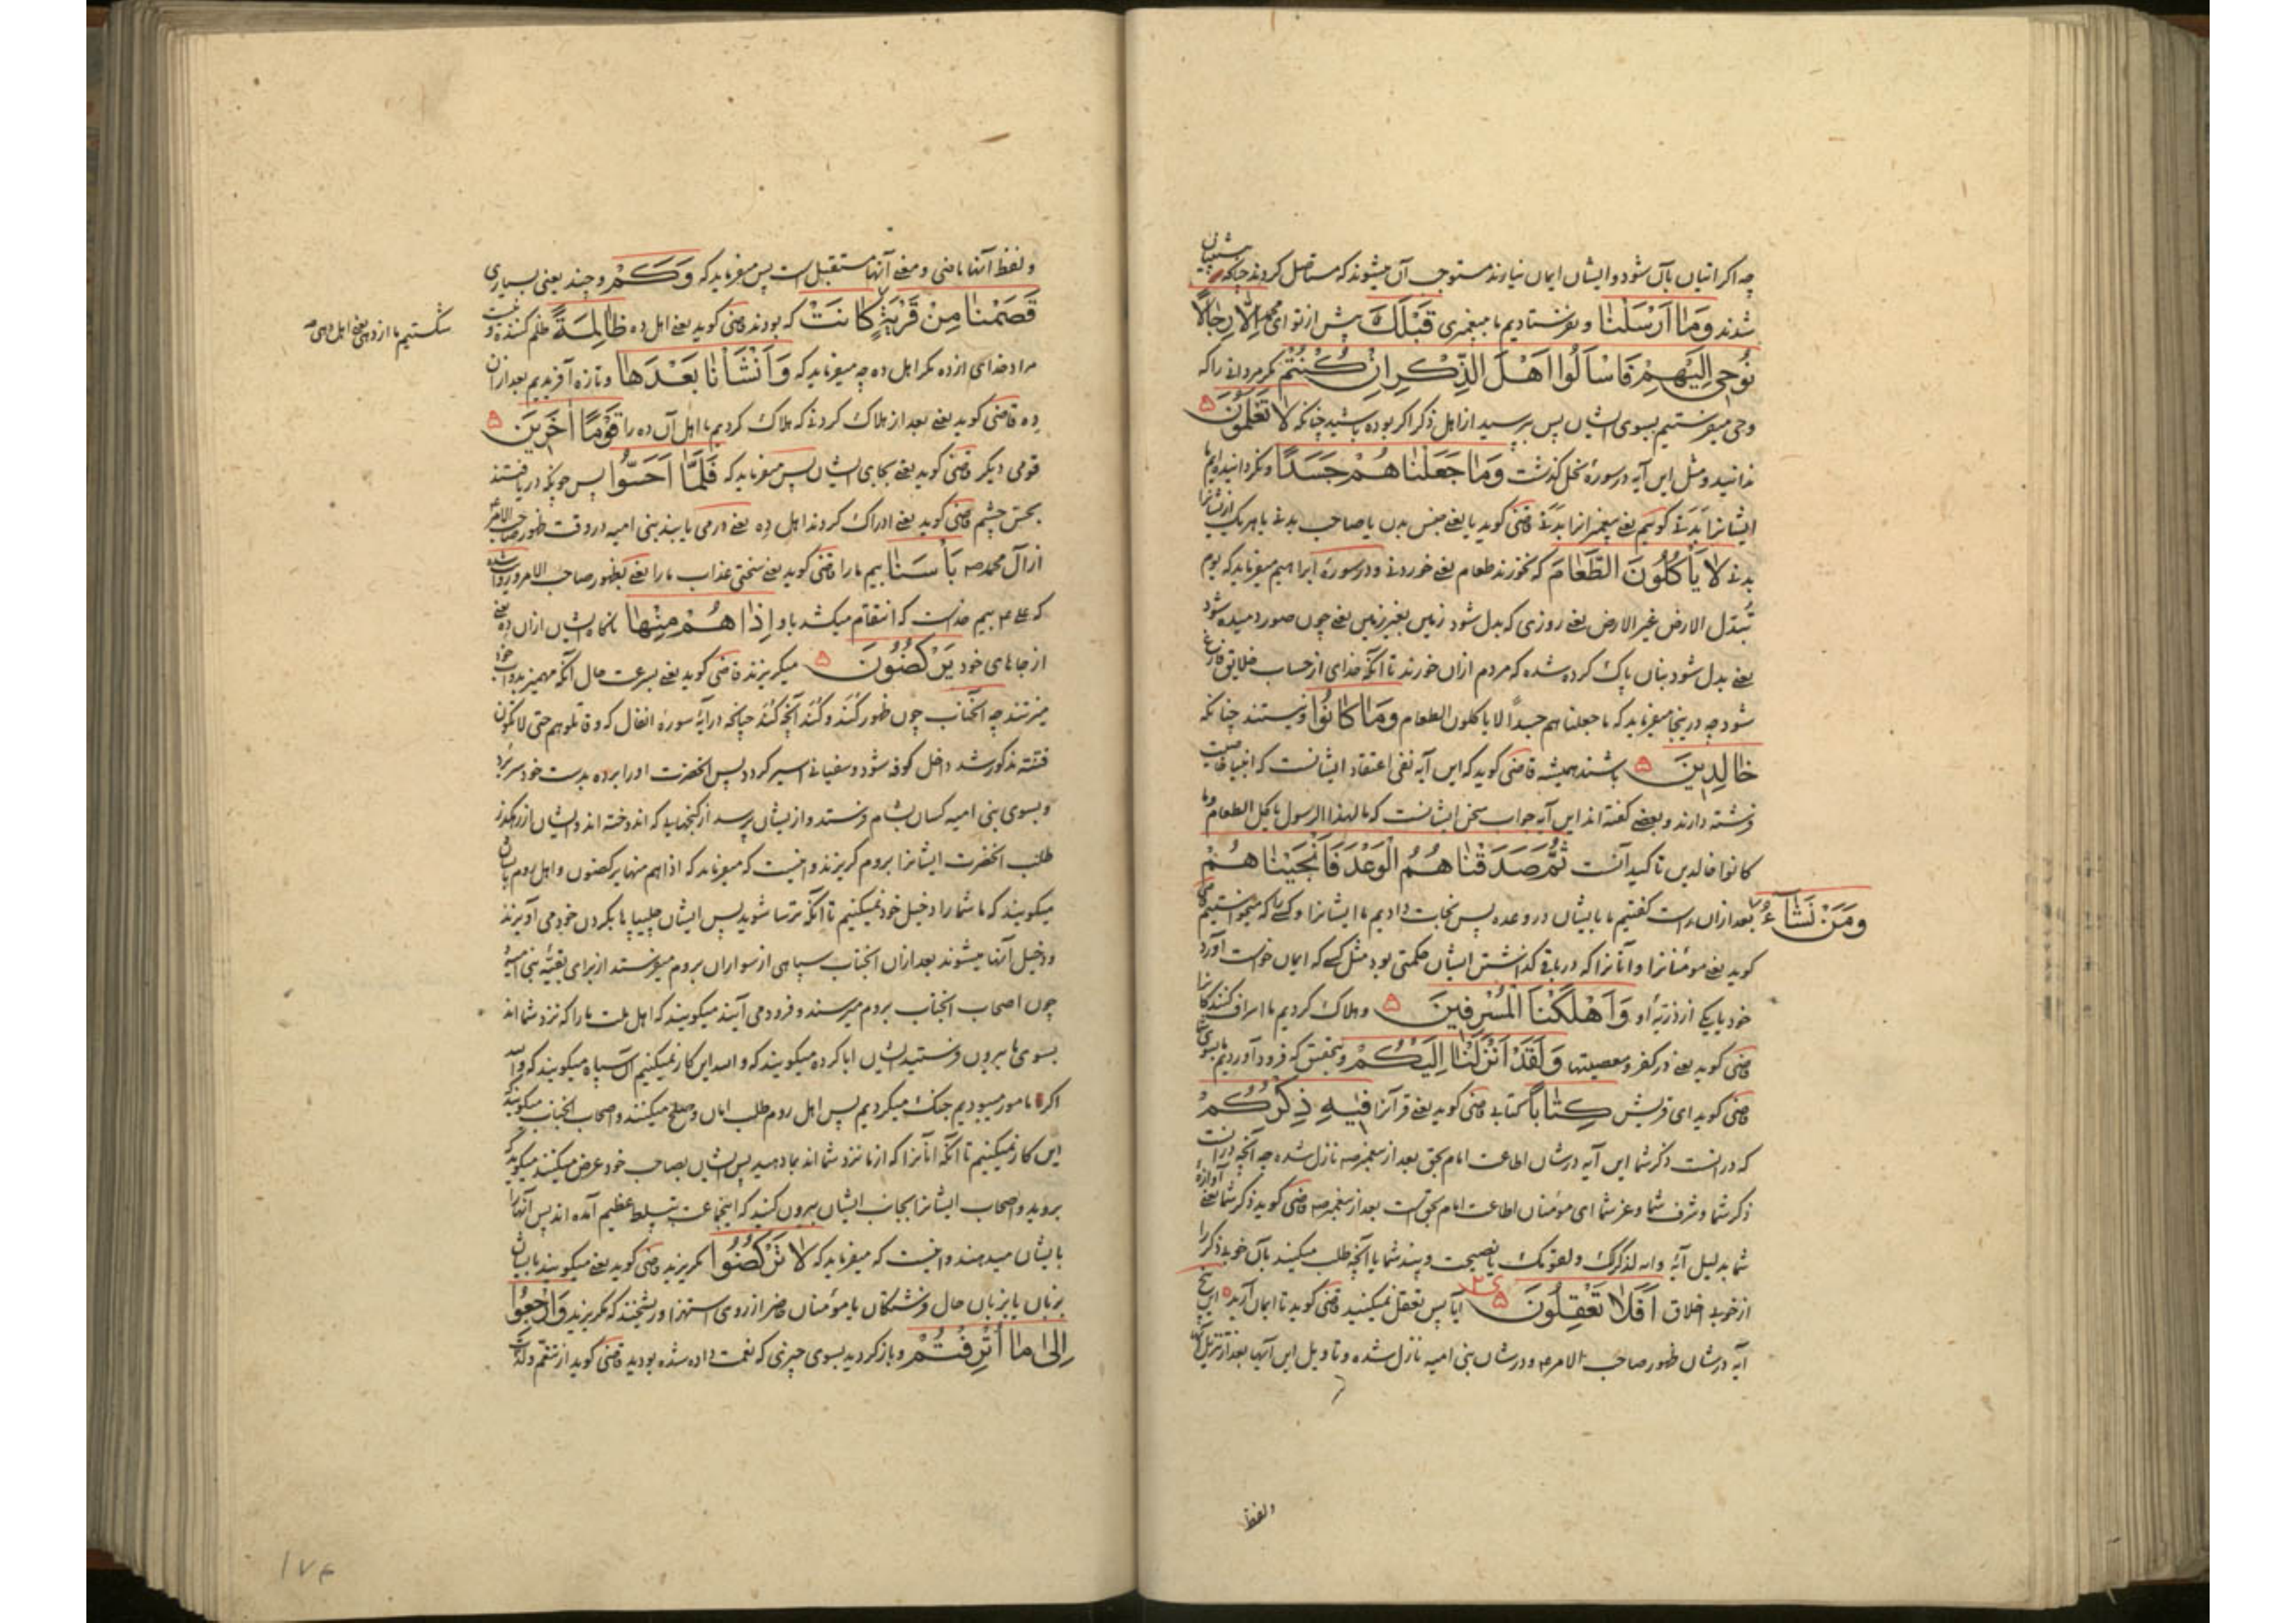 چه اکر اتیان بآن شود و ایشان ایمان نیارند مستوجب آن میشوند که مستاصل کردند چنانکه پیشینیان
شدند وَمٰا اَرْسَلْنٰا و نفرستادیم ما پیغمبری قَبْلَكَ پیش از تو ای محمد اِلّا رِجٰالًا
نُوحٖي اِلَيْهِمْ فَاسْاَلُوا اَهْلَ الذِّكْرِ اِنْ كُنْتُمْ مکر مردانی را که
وحی میفرستیم بسوی ایشان پس بپرسید از اهل ذکر اکر بوده باشید چنانکه لا تَعْلَمُونَ ۵
ندانید و مثل این آیه در سورهٔ نحل کذشت وَمٰا جَعَلْنٰاهُمْ جَسَدًا و نکردانیده‌ایم ما
ایشانرا بدنی کوییم یعنی پیغمبرانرا بدنی قاضی کوید یا یعنی جنس بدن یا صاحب بدنی یا هر یک از ایشانرا
بدنی لا يَاْكُلُونَ الطَّعٰامَ که نخورند طعام یعنی خوردنی و در سورهٔ ابراهیم میفرماید که یوم
تبدّل الارض غیر الارض یعنی روزی که بدل شود زمین بغیر زمین یعنی چون صور دمیده شود
یعنی بدل شود بنان پاک کرده شده که مردم ازان خورند تا آنکه خدای از حساب خلایق فارغ
شود چه درینجا میفرماید که ما جعلناهم جسداً لا یاکلون الطعام وَمٰا كٰانُوا و نیستند چنانکه
خٰالِدٖينَ ۵ باشند همیشه قاضی کوید که این آیه نفی اعتقاد ایشانست که انبیا خاصیت
فرشته دارند و بعضی کفته‌اند این آیه جواب سخن ایشانست که ما لهذا الرسول یاکل الطعام و ما
کانوا خالدین تاکید آنست ثُمَّ صَدَقْنٰاهُمُ الْوَعْدَ فَاَنْجَيْنٰاهُمْ
وَمَنْ نَشٰآءُ بعد ازان راست کفتیم ما بایشان در وعده پس نجات دادیم ما ایشانرا و کسی را که میخواستیم قاضی
کوید یعنی مؤمنانرا و آنانرا که در باقی کذاشتن ایشان حکمتی بود مثل کسی که ایمان خواست آورد
خود یا یکی از ذرّیه او وَاَهْلَكْنَا الْمُسْرِفٖينَ ۵ و هلاک کردیم ما اسراف کنندکانرا
قاضی کوید یعنی در کفر و معصیتها وَلَقَدْ اَنْزَلْنٰا اِلَيْكُمْ و بتحقیق که فرود آوردیم ما بسوی شما
قاضی کوید ای قریش كِتٰاباً کتابی قاضی کوید یعنی قرآنرا فٖيهِ ذِكْرُكُمْ
که در انست ذکر شما این آیه در شان اطاعت امام بحق بعد از پیغمبر صه نازل شده چه آنچه در انست
ذکر شما و شرف شما و عز شما ای مؤمنان اطاعت امام بحق است بعد از پیغمبر صه قاضی کوید ذکر شما یعنی آوازهٔ
شما بدلیل آیهٔ وانه لذکر لک ولقومک یا نصیحت و پند شما یا آنچه طلب میکنید بآن خوبی ذکر را
از خوبی اخلاق اَفَلا تَعْقِلُونَ ۵ ایا پس تعقل نمیکنید قاضی کوید تا ایمان آرید این پنج
آیه در شان ظهور صاحب الامر ع و در شان بنی امیه نازل شده و تاویل این آنها بعد از تنزیل آنها
ولفظ
ولفظ آنها ماضی و معنی آنها مستقبل است پس میفرماید که وَكَمْ و چند یعنی بسیاری
قَصَمْنٰا مِنْ قَرْيَةٍ كٰانَتْ که بودند قاضی کوید یعنی اهل ده ظٰالِمَةً ظلم کننده و نیست
شکستیم ما از دهی یعنی اهل دهی
مراد خدای از ده مکر اهل ده چه میفرماید که وَاَنْشَاْنٰا بَعْدَهٰا و تازه آفریدیم بعد ازان
ده قاضی کوید یعنی بعد از هلاک کردنی که هلاک کردیم ما اهل آن ده را قَوْمًا اٰخَرٖينَ ۵
قومی دیکر قاضی کوید یعنی بجای ایشان پس میفرماید که فَلَمّٰا اَحَسُّوا پس چونکه دریافتند
بحسّ چشم قاضی کوید یعنی ادراک کردند اهل ده یعنی در می یابند بنی امیه در وقت ظهور صاحب الامر
از آل محمد صه بَاْسَنٰا بیم ما را قاضی کوید یعنی سختی عذاب ما را یعنی بظهور صاحب الامر
که بیم خداست که انتقام میکشد باو اِذٰا هُمْ مِنْهٰا ناکاه ایشان ازان ده یعنی
از جاهای خود يَرْكُضُونَ ۵ میکریزند قاضی کوید یعنی بسرعت حال آنکه مهمیز بدواب خود
میزنند چه آنجناب چون ظهور کند و کند آنچه کند چنانچه در آیهٔ سورهٔ انفال که وقاتلوهم حتی لا تکون
فتنة مذکور شد داخل کوفه شود و سفیانی اسیر کردد پس انحضرت او را برده بدست خود سر برد
و بسوی بنی امیه کسان بشام فرستد و از یشان پرسد از کنجهایی که اندوخته‌اند و ایشان از رهکذر
طلب انحضرت ایشانرا بروم کریزند و اینست که میفرماید که اذا هم منها یرکضون و اهل روم بایشان
میکویند که ما شما را دخیل خود نمیکنیم تا آنکه ترسا شوید پس ایشان چلیپاها بکردن خود می آویزند
و دخیل آنها میشوند بعد ازان انجناب سپاهی از سواران بروم میفرستد از برای بقیهٔ بنی امیه
چون اصحاب انجناب بروم میرسند و فرود می آیند میکویند که اهل ملت ما را که نزد شما اند
بسوی ما بیرون فرستید ایشان ابا کرده میکویند که والله این کار نمیکنیم آن سپاه میکویند که والله
اکر مامور میبودیم جنک میکردیم پس اهل روم طلب امان و صلح میکنند و اصحاب انجناب میکویند
این کار نمیکنیم تا آنکه آنانرا که از ما نزد شما اند بما دهید پس ایشان بصاحب خود عرض میکنند میکوید که
بروید و اصحاب ایشانرا بجانب ایشان بیرون کنید که اینجماعت بتسلط عظیم آمده اند پس آنها را
بایشان میدهند و اینست که میفرماید که لا تَرْكُضُوا مکریزید قاضی کوید یعنی میکویند بایشان
بزبان یا بزبان حال فرشتکان یا مؤمنان حاضر از روی استهزا و ریشخند که مکریزید وَارْجِعُوا
اِلىٰ مٰا اُتْرِفْتُمْ و باز کردید بسوی چیزی که نعمت داده شده بودید قاضی کوید از تنعّم و لذت
۱۷۴